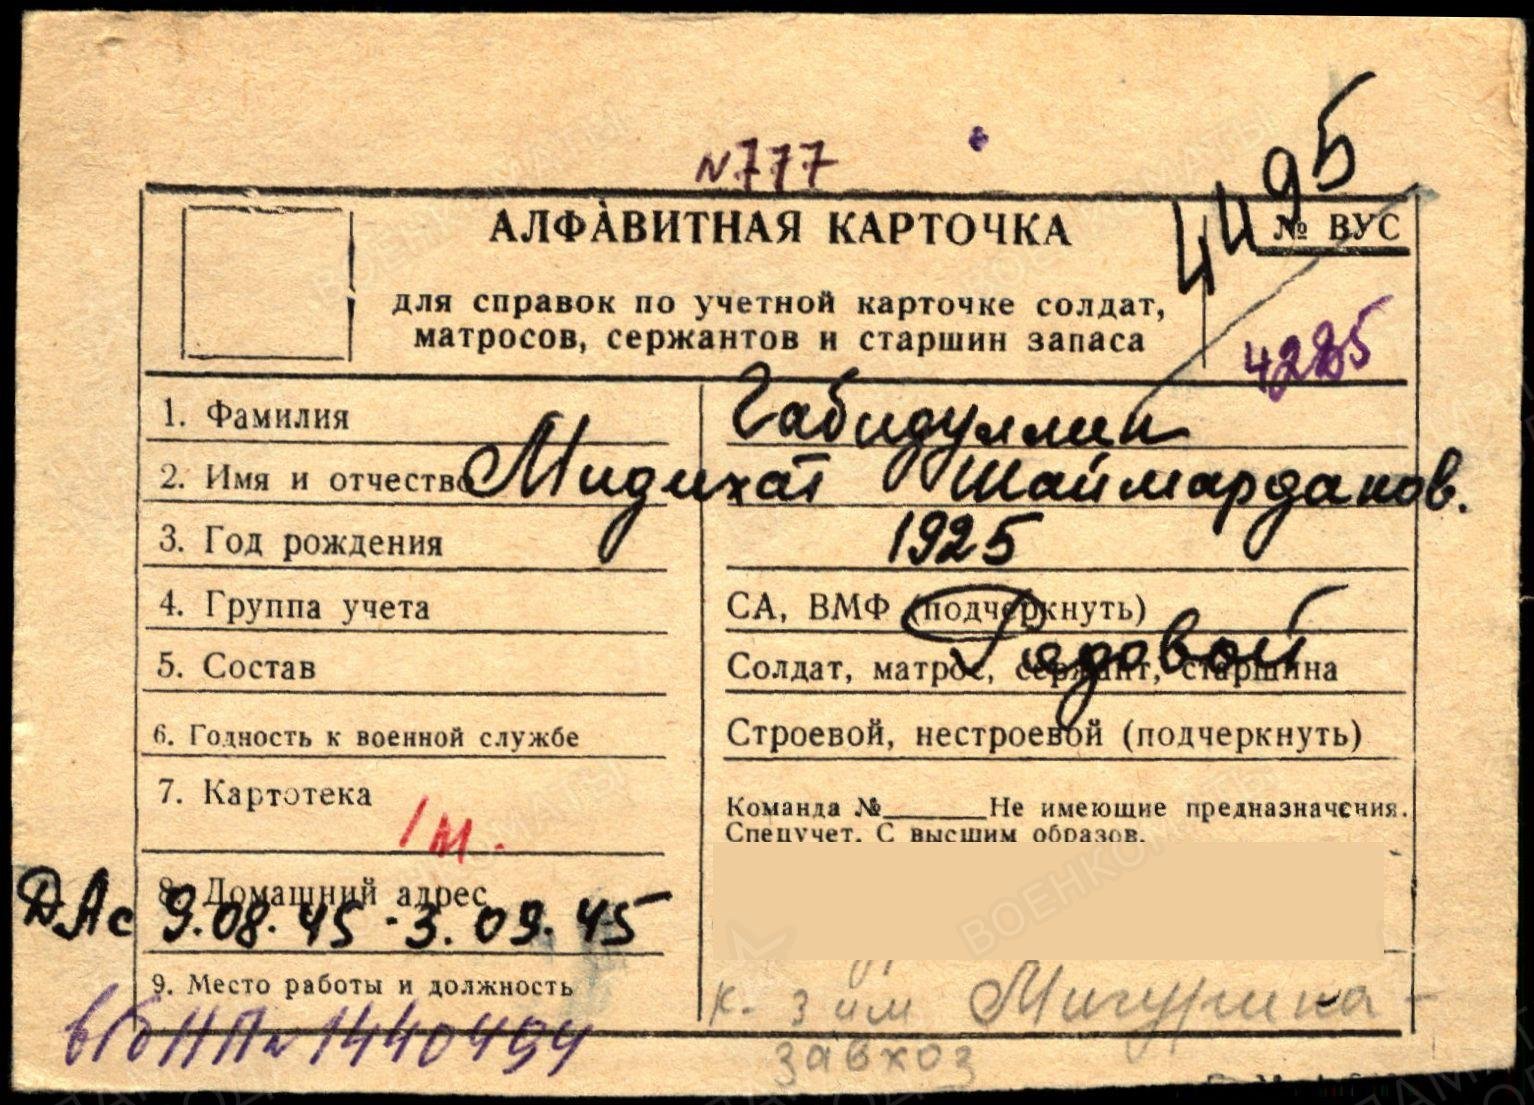 N777
95
44
АЛФАВИТНАЯ КАРТОЧКА
№ ВУС
для справок по учетной карточке солдат,
матросов, сержантов и старшин запаса
4225
1. Фамилия Габидуллин
2. Имя и отчество Мидихат Шаймарданов.
3. Год рождения 1925
4. Группа учета СА, ВМФ (подчеркнуть)
Рядовой
5. Состав Солдат, матрос, сержант, старшина
6. Годность к военной службе Строевой, нестроевой (подчеркнуть)
7. Картотека 1 м.
Команда №______Не имеющие предназначения.
Спецучет. С высшим образов.
8. Домашний адрес
ДАс 9.08.45 - 3.09.45
9. Место работы и должность к-з им Мичурина -
завхоз
1440494
ВОЕНКОМАТЫ